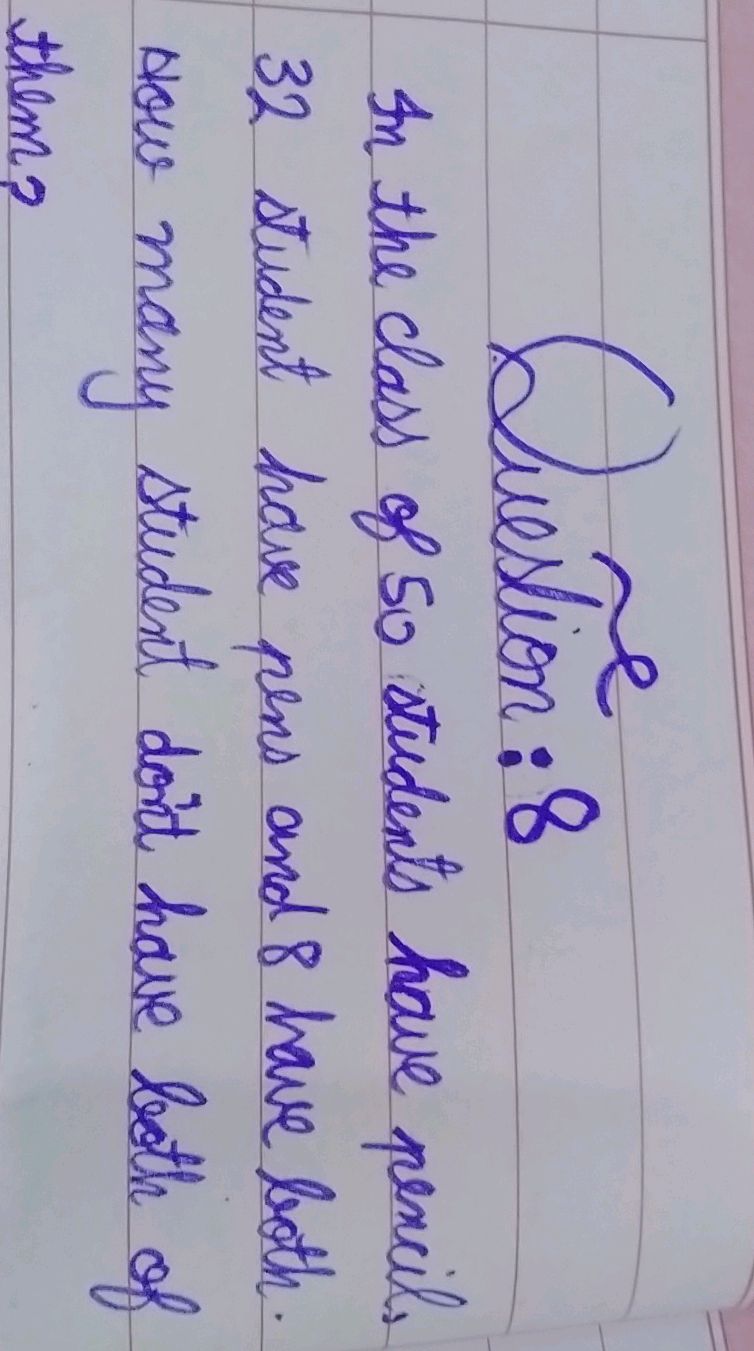 Question : 8
In the class of 50 students have pencil,
32 student have pens and 8 have both.
How many student don't have both of
them?